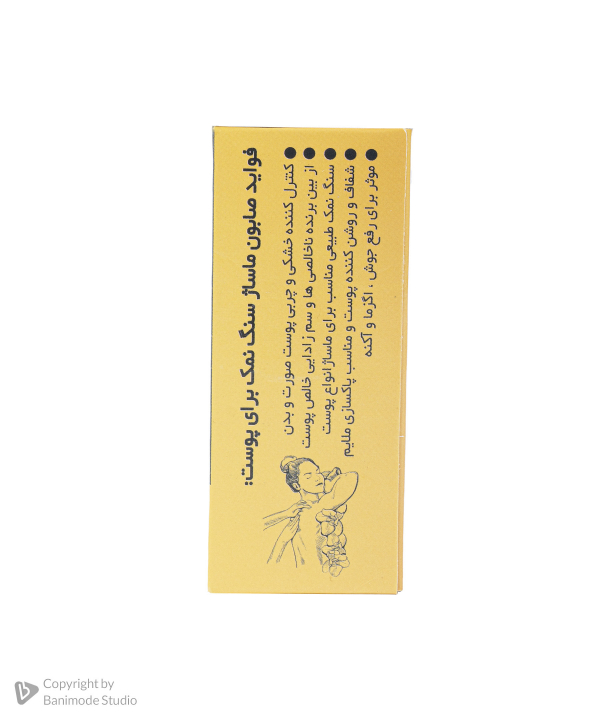 فواید صابون ماساژ سنگ نمک برای پوست:
● کنترل کننده خشکی و چربی پوست صورت و بدن
● از بین برنده ناخالصی ها و سم زدایی خالص پوست
● سنگ نمک طبیعی مناسب برای ماساژ انواع پوست
● شفاف و روشن کننده پوست و مناسب پاکسازی ملایم
● موثر برای رفع جوش ، اگزما و آکنه
Copyright by
Banimode Studio